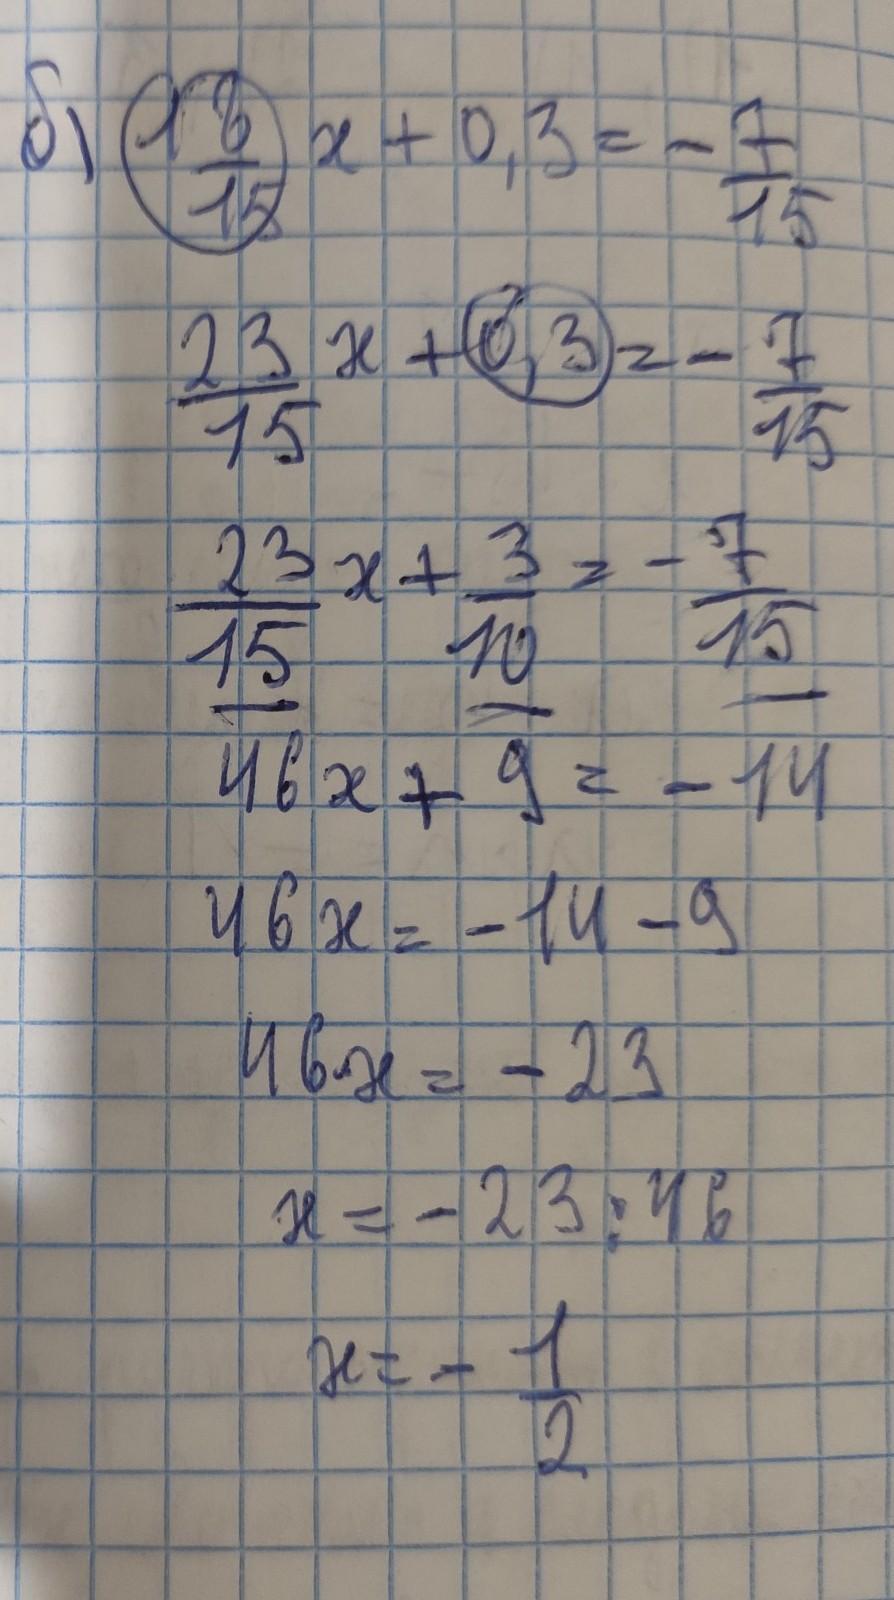 б) 1 8/15 x + 0,3 = - 7/15
23/15 x + 0,3 = - 7/15
23/15 x + 3/10 = - 7/15
46x + 9 = - 14
46x = - 14 - 9
46x = - 23
x = - 23 : 46
x = - 1/2